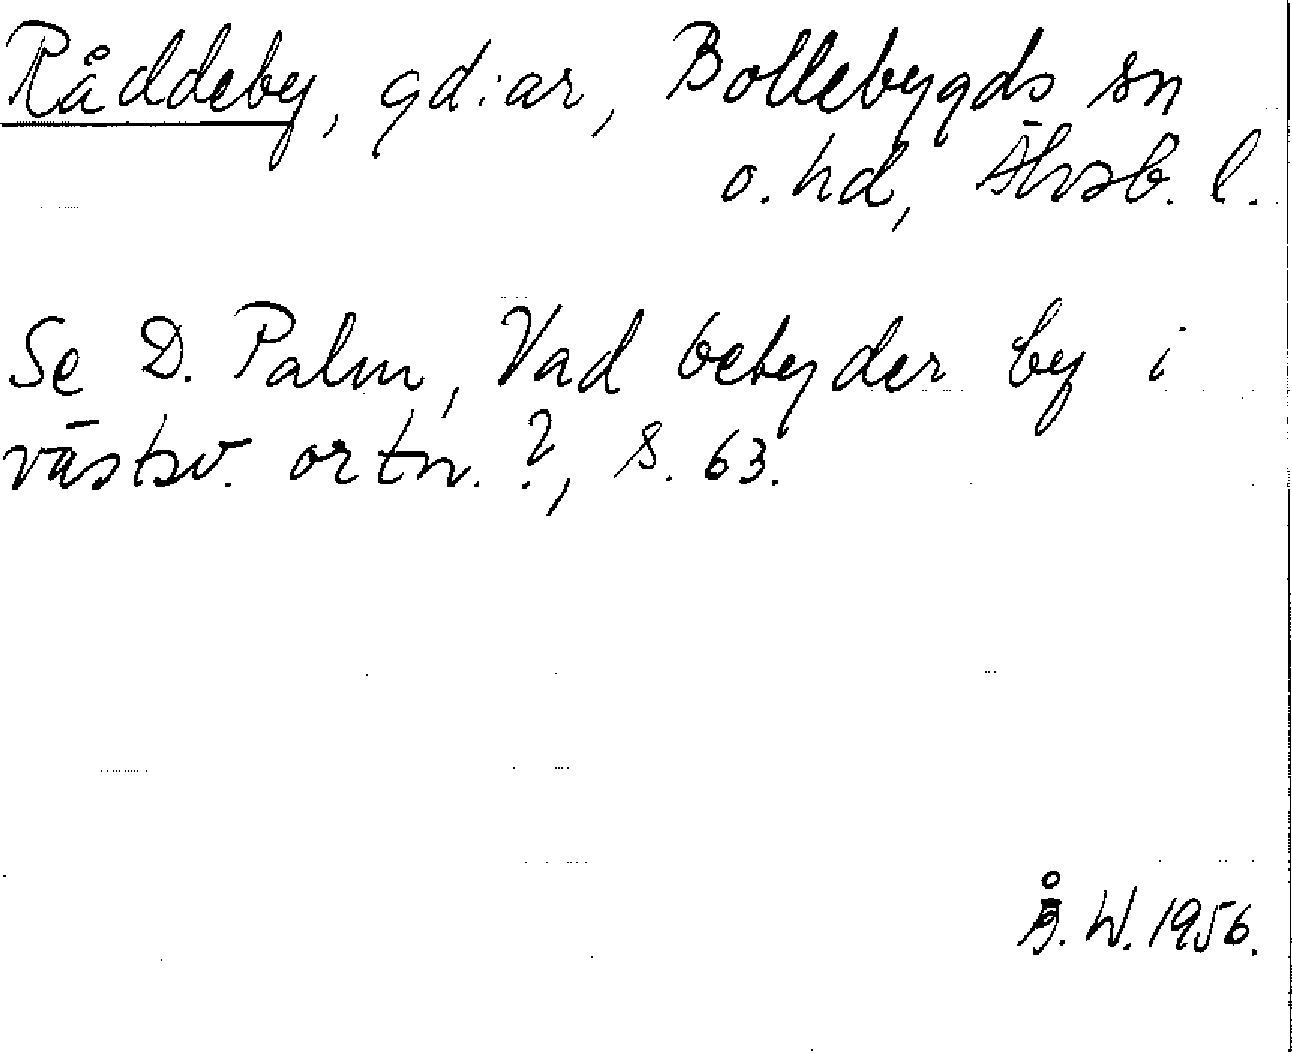 Råddeby, gd:ar, Bollebygds sn
o. hd, Älvsb. l.
Se D. Palm, Vad betyder by i
västsv. ortn.?, s. 63.
Å. W. 1956.